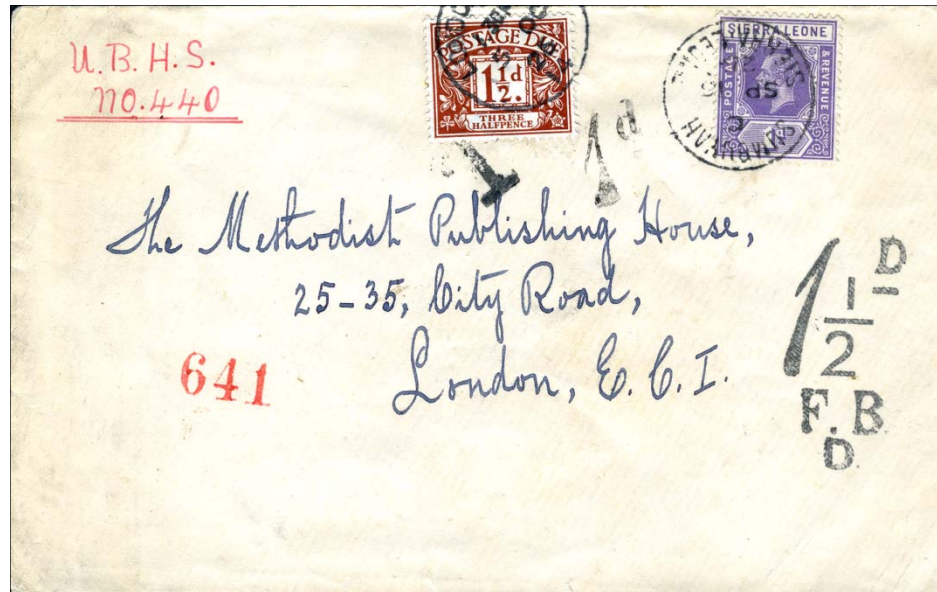 U.B.H.S.
NO.440
POSTAGE DUE
1½d.
THREE
HALFPENCE
SIERRA LEONE
POSTAGE
& REVENUE
SIERRA LEONE
SP
1
1d
The Methodist Publishing House,
25-35, City Road,
London, E.C.I.
1½D
F.B.
D.
641